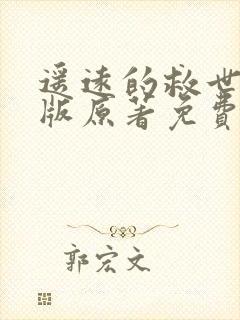 遥远的救世
版原著免费
郭宏文